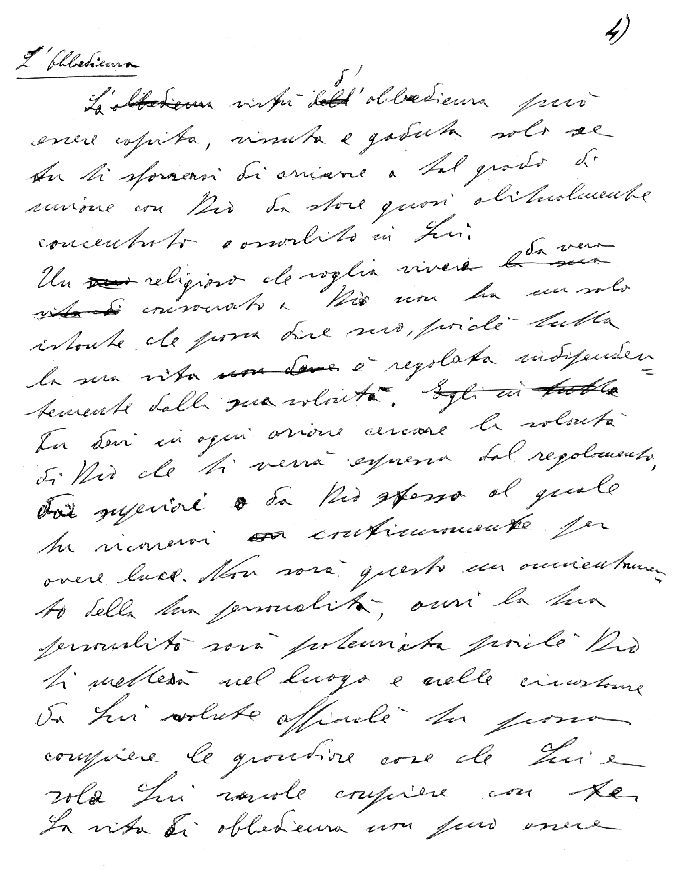 4)
L'Obbedienza
La obbedienza virtù dell' d' obbedienza può
essere capita, vissuta e goduta solo se
tu ti sforzerai di arrivare a tal grado di
unione con Dio da stare quasi abitualmente
concentrato o assorbito in Lui.
Un vero religioso che voglia vivere la sua da vero
vita di consacrato a Dio non ha un solo
istante che possa dire suo, poiché tutta
la sua vita non deve è regolata indipenden=
temente dalla sua volontà. Egli in tutto
Tu devi in ogni azione cercare la volontà
di Dio che ti verrà espressa dal regolamento,
dai superiori o da Dio stesso al quale
tu ricorrerai continuamente per
avere luce. Non sarà questo un annientamen=
to della tua personalità, anzi la tua
personalità sarà potenziata poiché Dio
ti metterà nel luogo e nelle circostanze
da Lui volute affinché tu possa
compiere le grandiose cose che Lui e
solo Lui vuole compiere con te.
La vita di obbedienza non può essere